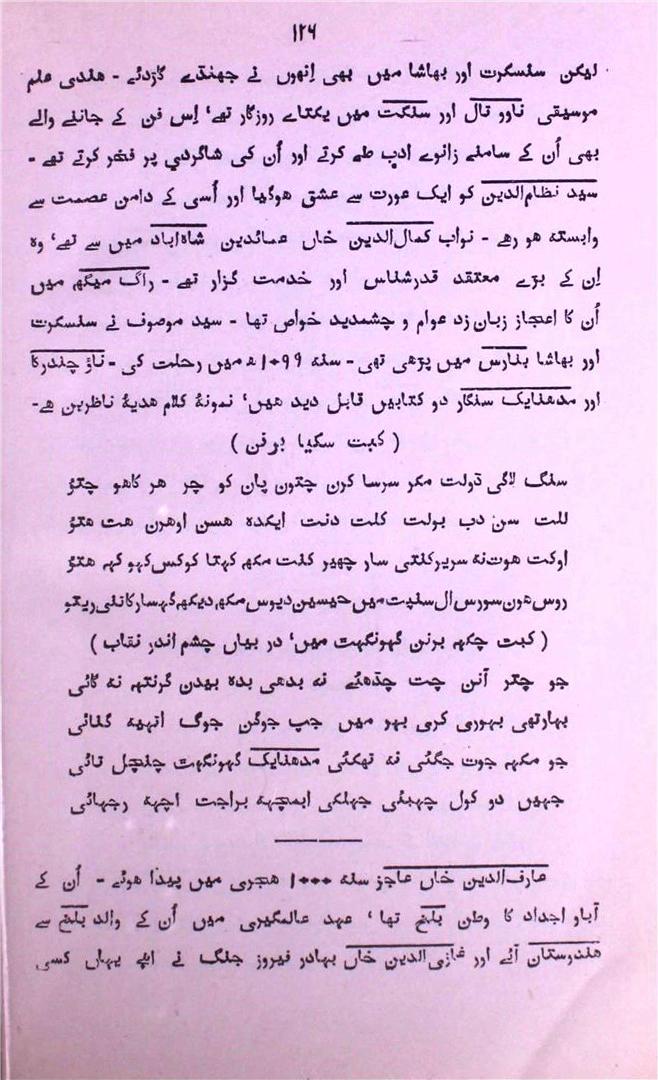 ۱۲۶
لیکن سنسکرت اور بھاشا میں بھی اِنھوں نے جھنڈے گاڑدئے - ھندی علم
موسیقی ناور تال اور سنگت میں یکتاے روزگار تھے' اِس فن کے جاننے والے
بھی اُن کے سامنے زانوے ادب طے کرتے اور اُن کی شاگردي پر فخر کرتے تھے -
سید نظام‌الدین کو ایک عورت سے عشق ھوگیا اور اُسی کے دامن عصمت سے
وابستہ ھو رھے - نواب کمال‌الدین خاں عمائدین شاہ‌آباد میں سے تھے' وہ
اِن کے بڑے معتقد قدرشناس اور خدمت گزار تھے - راگ میگھ میں
اُن کا اعجاز زبان زد عوام و چشمدید خواص تھا - سید موصوف نے سنسکرت
اور بھاشا بنارس میں پڑھی تھی - سنہ ۱۰۹۹ ھ میں رحلت کی - ناؤ چندرکا
اور مدھنایک سنگار دو کتابیں قابل دید ھیں' نمونۂ کلام ھدیۂ ناظرین ھے-
( کبت سکیا برفن )
سنگ لاگی ڈولت مکر سرسا کرن چتون پان کو چر ھر کاھو چتؤ
للت سن دب بولت کلت دنت ایکدہ ھسن اوھرن ھت ھتؤ
اوکت ھوت نہ سریر کنتی سار چھیر کنت مکھ کہتا کوکس کہو کہہ ھتؤ
روس ھون سورس ال سنپت میں حیسین دیوس مکھ دیکھ گہسار کانئی ریتو
( کبت چکھہ برنن گھونگھت میں' در بیاں چشم اندر نقاب )
جو چتر آنن چت چڈھئے نہ بدھی بدہ بیدن گرنتھہ نہ گائی
بھارتھی بہوری کری بہر میں جپ جوگن جوگ انہیہ گنائی
جو مکھہ جوت جگئی نہ تھکئی مدھنایک گھونگھت چنچل تائی
جہیں دو کول چہبئی جہلکی ابمچھہ براجت اچھہ رجہائی
عارف‌الدین خاں عاجز سنہ ۱۰۰۰ ھجری میں پیدا ھوئے - اُن کے
آباو اجداد کا وطن بلخ تھا' عہد عالمگیری میں اُن کے والد بلخ سے
ھندوستان آئے اور غازی‌الدین خاں بہادر فیروز جنگ نے اپنے یہاں کسی